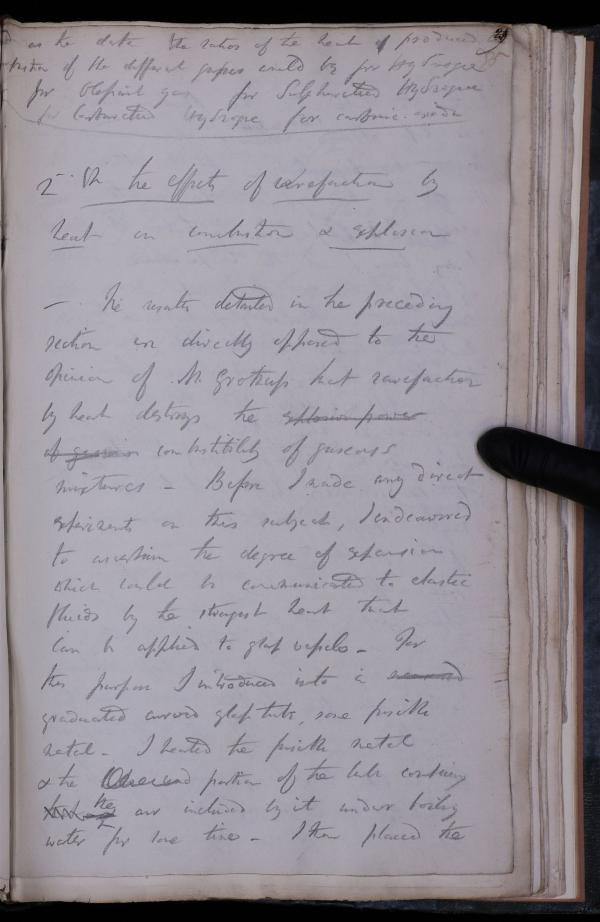 as the data the ratios of the heat of produced
of the different gasses would be for Hydrogene
for Olefiant gas for Sulphuretted Hydrogene
for Carburetted Hydrogene for carbonic oxide
2. On the effects of rarefaction by
heat on combustion & explosion
— The results detailed in the preceding
section are directly opposed to the
Opinion of M. Grotthuss that rarefaction
by heat destroys the explosive power
of gaseous combustibility of gaseous
mixtures – Before I made any direct
experiments on this subject, I endeavored
to ascertain the degree of expansion
which could be communicated to elastic
fluids by the strongest heat that
can be applied to glass vessels – For
this purpose I introduced into a
graduated curved glass tube, some fusible
metal – I heated the fusible metal
& the portion of the tube containing
the air included by it under boiling
water for some time – I then placed the